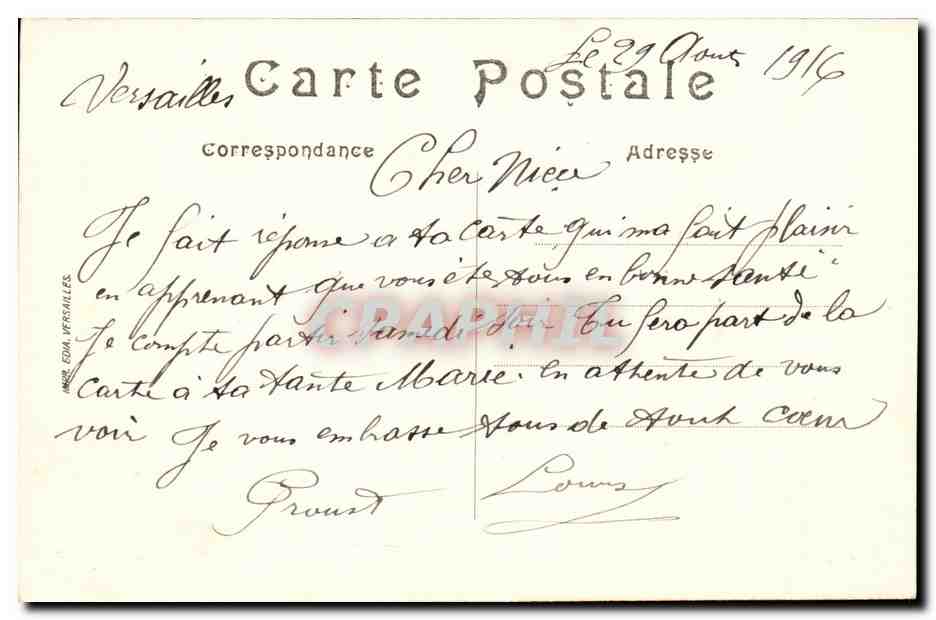 Le 29 Aout 1916
Versailles Carte Postale
Correspondance Adresse
Cher Niece
Je fait réponse a ta carte qui ma fait plaisir
en apprenant que vous éte tous en bonne santé
Je compte partir samedi soir Tu fera part de la
carte à ta tante Marie. en attente de vous
voir Je vous embrasse tous de tout cœur
Proust Louis
IMP. EDIA. VERSAILLES.
CPAPHIL